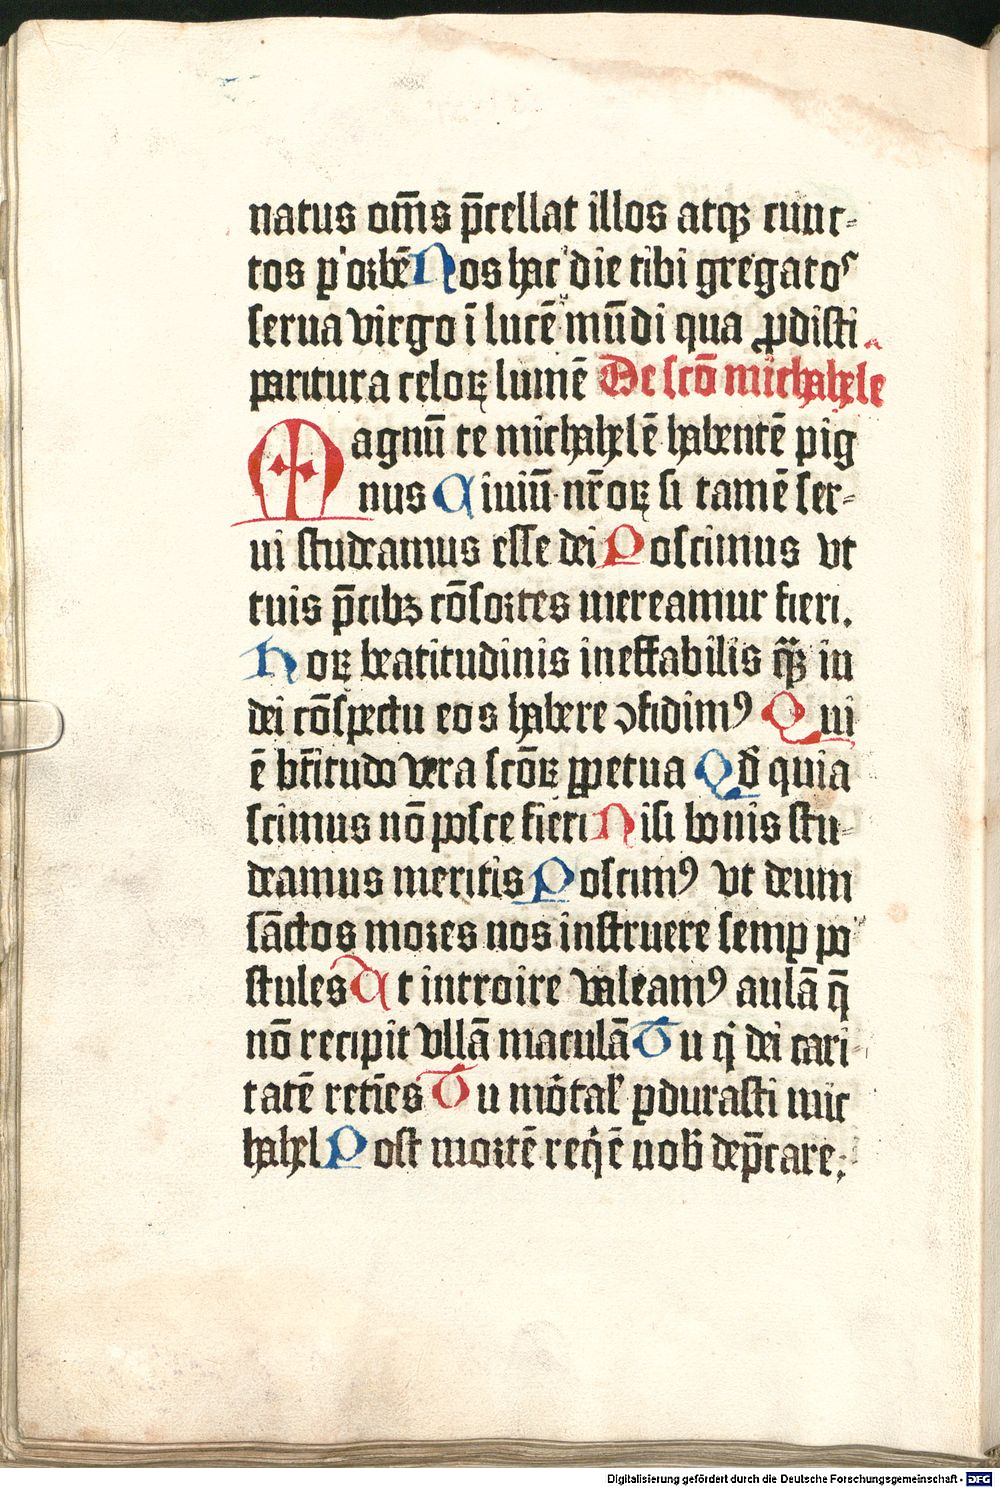 natus om̄s p̄cellat illos atqꝫ cunc⸗
tos ꝑ orbē Nos hac die tibi gregatos
serua virgo ī lucē mūdi qua ꝓdisti
paritura celoꝝ lumē De scō michahele
Magnū te michahelē habentē pig
nus Ciuiū nr̄oꝝ si tamē ser⸗
ui studeamus esse dei Poscimus vt
tuis p̄cibꝫ cōsortes mereamur fieri.
Horꝝ beatitudinis ineffabilis q̄ꝫ in
dei cōspectu eos habere ↄfidimꝰ Qui
ē btītudo vera scōꝝ ꝑpetua Qđ quia
scimus nō posce fieri Nisi bonis stu⸗
deamus meritis Poscimꝰ vt deum
sāctos mores nos instruere semꝑ po
stules At introire valeamꝰ aulā q̄
nō recipit vllā maculā Tu qͥ dei cari⸗
tatē retīes Tu mōtal ꝑdurasti mic
hahel Post mortē reqͥē nob̄ dep̄care.
Digitalisierung gefördert durch die Deutsche Forschungsgemeinschaft - DFG